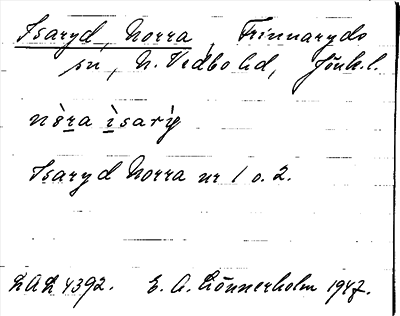 Isaryd, Norra, Frinnaryds
sn, N. Vedbo hd, Jönk. l.
nòra ìsarỳ
Isaryd Norra nr 1 o. 2.
LAL 4392. E. A. Lönnerholm 1947.